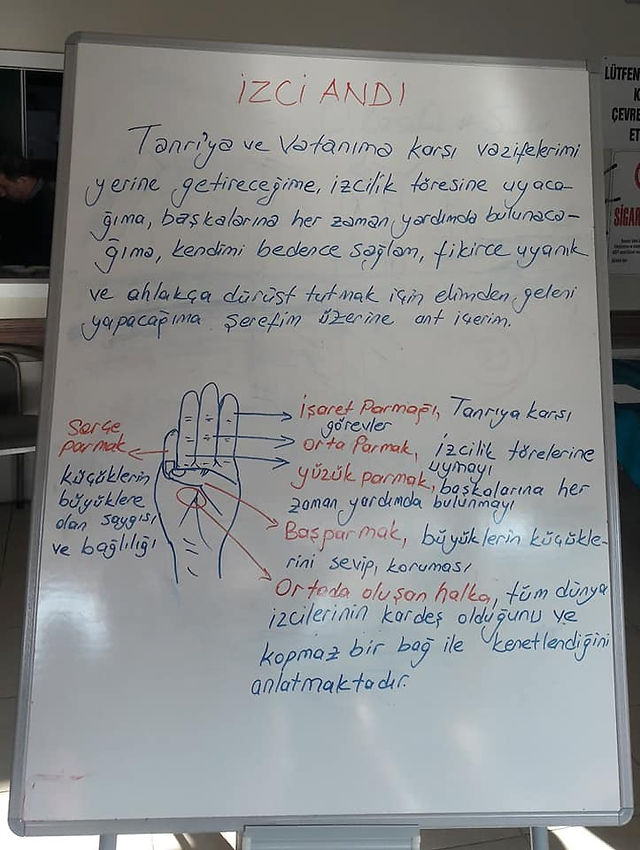 İZCİ ANDI
Tanrı'ya ve Vatanıma karşı vazifelerimi
yerine getireceğime, izcilik töresine uyaca-
ğıma, başkalarına her zaman yardımda bulunaca-
ğıma, kendimi bedence sağlam, fikirce uyanık
ve ahlakça dürüst tutmak için elimden geleni
yapacağıma şerefim üzerine ant içerim.
Serçe
parmak
küçüklerin
büyüklere
olan saygısı
ve bağlılığı
işaret Parmağı, Tanrıya karşı
görevler
orta Parmak, izcilik törelerine
uymayı
yüzük parmak, başkalarına her
zaman yardımda bulunmayı
Başparmak, büyüklerin küçükle-
rini sevip, koruması
Ortada oluşan halka, tüm dünya
izcilerinin kardeş olduğunu ve
kopmaz bir bağ ile kenetlendiğini
anlatmaktadır.
LÜTFEN
ÇEVRE
ET
SİGAR